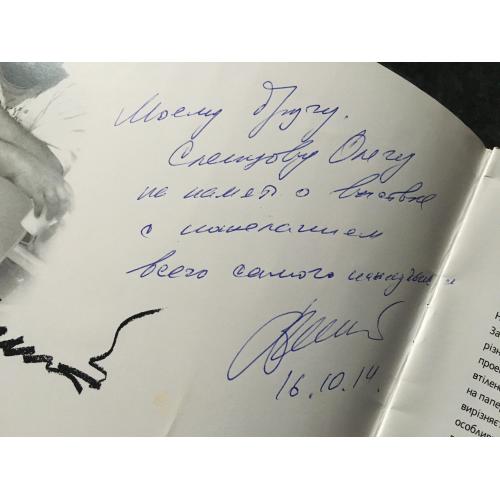 Моему другу.
Олегу
на память о выставке
с пожеланием
всего самого наилучшего
16.10.14.
За
різн
прое
втілен
на папе
вирізняє
особлив